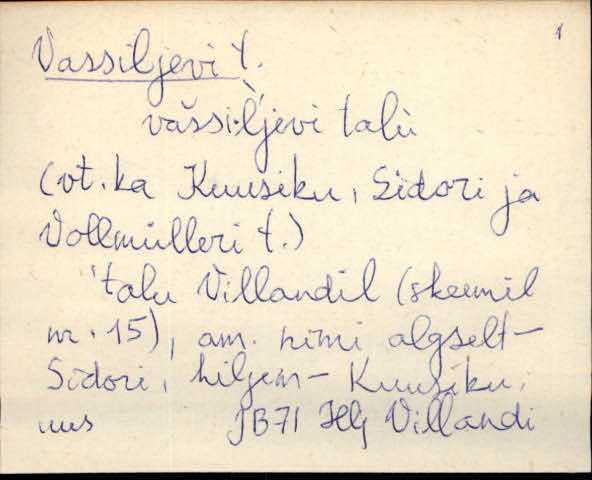 1
Vassiljevi t.
vašsi·l̀jevi talù
(vt. ka Kuusiku, Sidori ja
Vollmülleri t.)
'talu Villandil (skeemil
nr. 15), am. nimi algselt -
Sidori, hiljem - Kuusiku,
uus JB71 Hlj Villandi